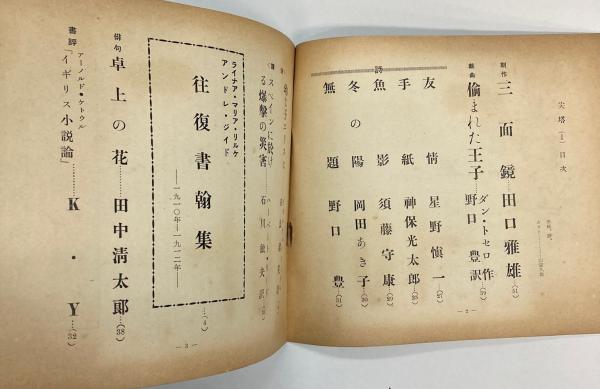 尖塔(1)目次
創作 三面鏡……田口雅雄…(51)
戯曲 偸まれた王子 ダン・トセロ作 野口豊訳…(39)
詩
友情 星野慎一…(27)
手紙 神保光太郎…(28)
魚影 須藤守康…(29)
冬の陽 岡田あき子…(30)
無題 野口豊…(31)
— 2 —
スペインに於ける爆撃の災害
ライナア・マリア・リルケ
アンドレ・ジイド
往復書翰集
—一九一〇年—一九一二年—
…(4)
俳句 卓上の花……田中清太郎…(38)
書評 アーノルド・ケトウル「イギリス小説論」……K・Y…(32)
— 3 —